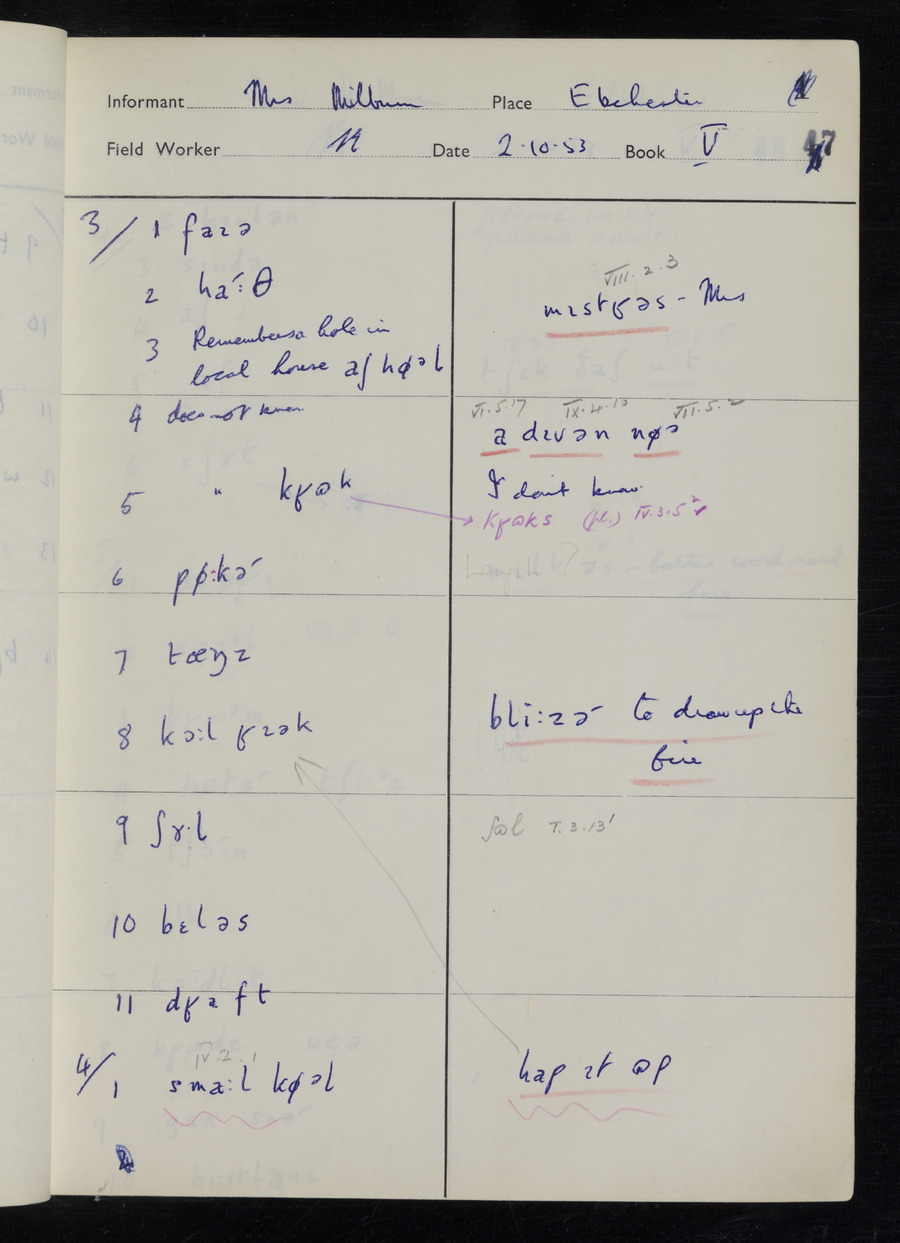 Informant Mrs Milburn Place Ebchester
Field Worker Date 2.10.53 Book V 47
3/ 1 faɪə
2 ha˞:θ
3 Remembers a hole in
local house aʃ hφəl
4 does not know
5 " kʁɷk
6 pφ:kə˞
7 tæŋz
8 kɔ:l ʁɪək
9 ʃɤ·l
10 bɛləs
11 dʁaft
4/ 1 sma:l kφəl
IV.2.1
VIII.2.3
mɪstʁəs - Mrs
VI.5.17 IX.4.10 VII.5.2
a dɪvən nφə
I don't know
kʁɷks (pl.) IV.3.5
bli:zə˞ to draw up the
fire
ʃɷl V.3.13
hap ɪt ɷp